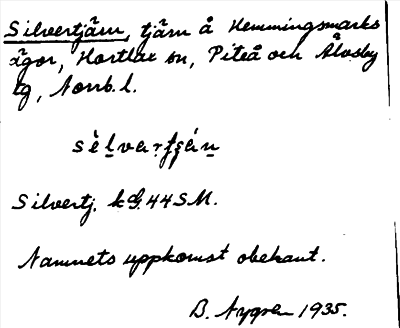 Silvertjärn, tjärn å Hemmingsmarks
ägor, Hortlax sn, Piteå och Älvsby
tg, Norrb. l.
Silvertj. kG.44 S.M.
Namnets uppkomst obekant.
B. Nygren 1935.